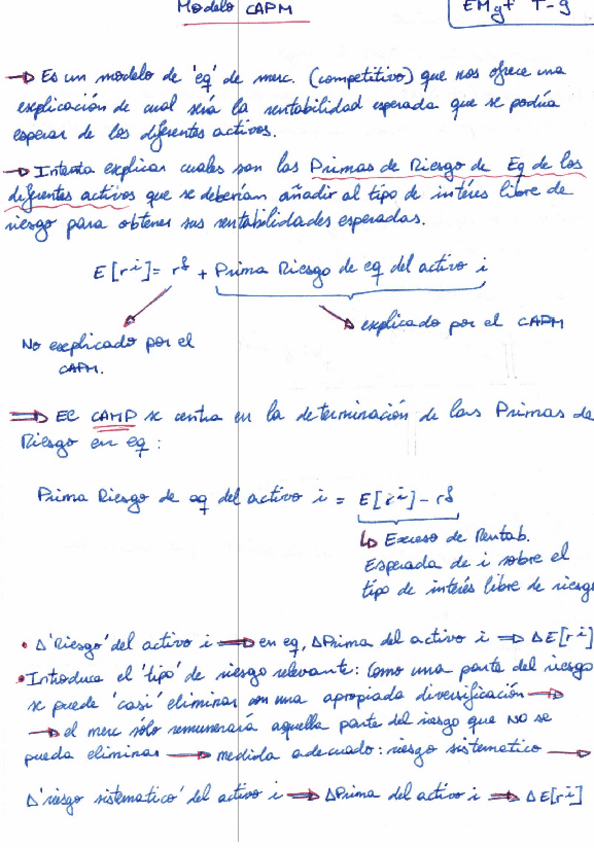 Modelo CAPM
EMgf T-9
→ Es un modelo de 'eq' de merc. (competitivo) que nos ofrece una
explicación de cual sería la rentabilidad esperada que se podía
esperar de los diferentes activos.
→ Intenta explicar cuales son las Primas de Riesgo de Eq de los
diferentes activos que se deberían añadir al tipo de interés libre de
riesgo para obtener sus rentabilidades esperadas.
E[rⁱ] = rᶠ + Prima Riesgo de eq del activo i
explicado por el CAPM
No explicado por el
CAPM.
⇒ El CAMP se centra en la determinación de las Primas de
Riesgo en eq:
Prima Riesgo de eq del activo i = E[rⁱ] - rᶠ
↳ Exceso de Rentab.
Esperada de i sobre el
tipo de interés libre de riesgo
• Δ'Riesgo' del activo i ⇒ en eq, ΔPrima del activo i ⇒ ΔE[rⁱ]
• Introduce el 'tipo' de riesgo relevante: Como una parte del riesgo
se puede 'casi' eliminar con una apropiada diversificación →
→ el merc sólo remunerará aquella parte del riesgo que NO se
pueda eliminar → medida adecuado: riesgo sistematico →
Δ'riesgo sistematico' del activo i ⇒ ΔPrima del activo i ⇒ ΔE[rⁱ]